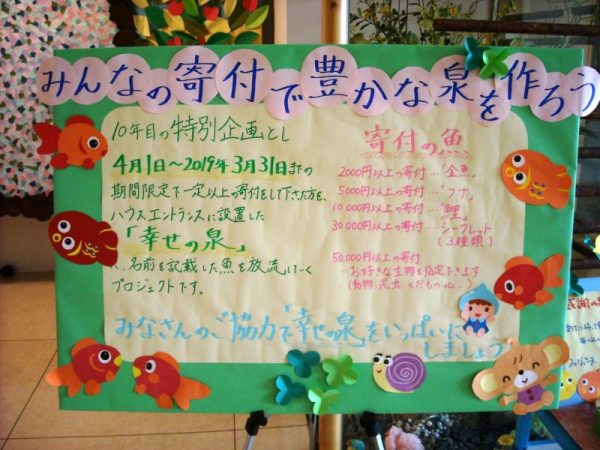 みんなの寄付で豊かな泉を作ろう
10年目の特別企画とし
4月1日〜2019年3月31日までの
期間限定で一定以上の寄付をして下さった方を、
ハウスエントランスに設置した
「幸せの泉」
へ、名前を記載した魚を放流していく
プロジェクトです。
寄付の魚
2000円以上の寄付…「金魚」
5000円以上の寄付…「フナ」
10,000円以上の寄付…「鯉」
30,000円以上の寄付…シークレット
(3種類)
50,000円以上の寄付
…お好きな生物を指定できます
(動物・昆虫・くだもの etc…)
みなさんのご協力で「幸せの泉」をいっぱいに
しましょう
みなさま